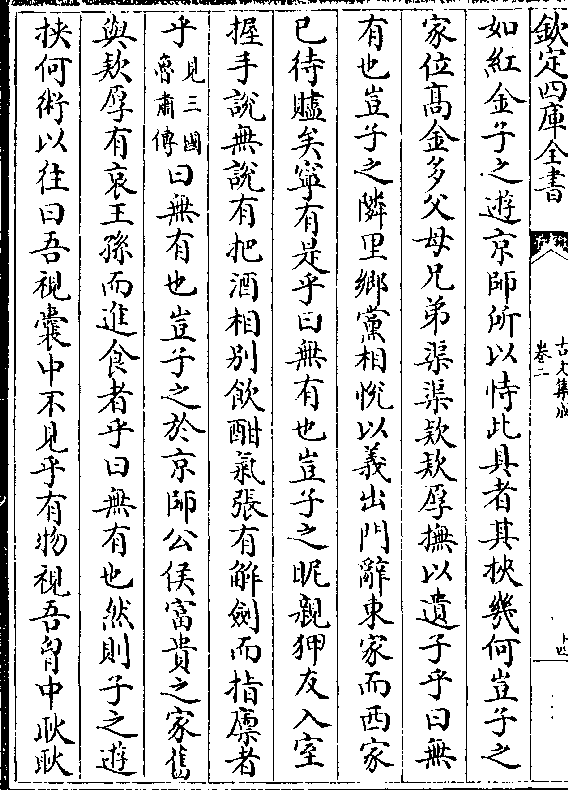 欽定四庫全書
古文集成
卷二
如紅金子之遊京師所以恃此具者其挾幾何豈子之
家位髙金多父母兄弟渠渠欵欵厚撫以遺子乎曰無
有也豈子之隣里鄉黨相恱以義出門辭東家而西家
已待贐矣寧有是乎曰無有也豈子之昵親狎友入室
握手說無說有把酒相别飲酣氣張有解劍而指廪者
乎見三國魯肅傳曰無有也豈子之於京師公侯富貴之家舊
與欵厚有哀王孫而進食者乎曰無有也然則子之遊
挟何術以往曰吾視囊中不見乎有物視吾胷中耿耿